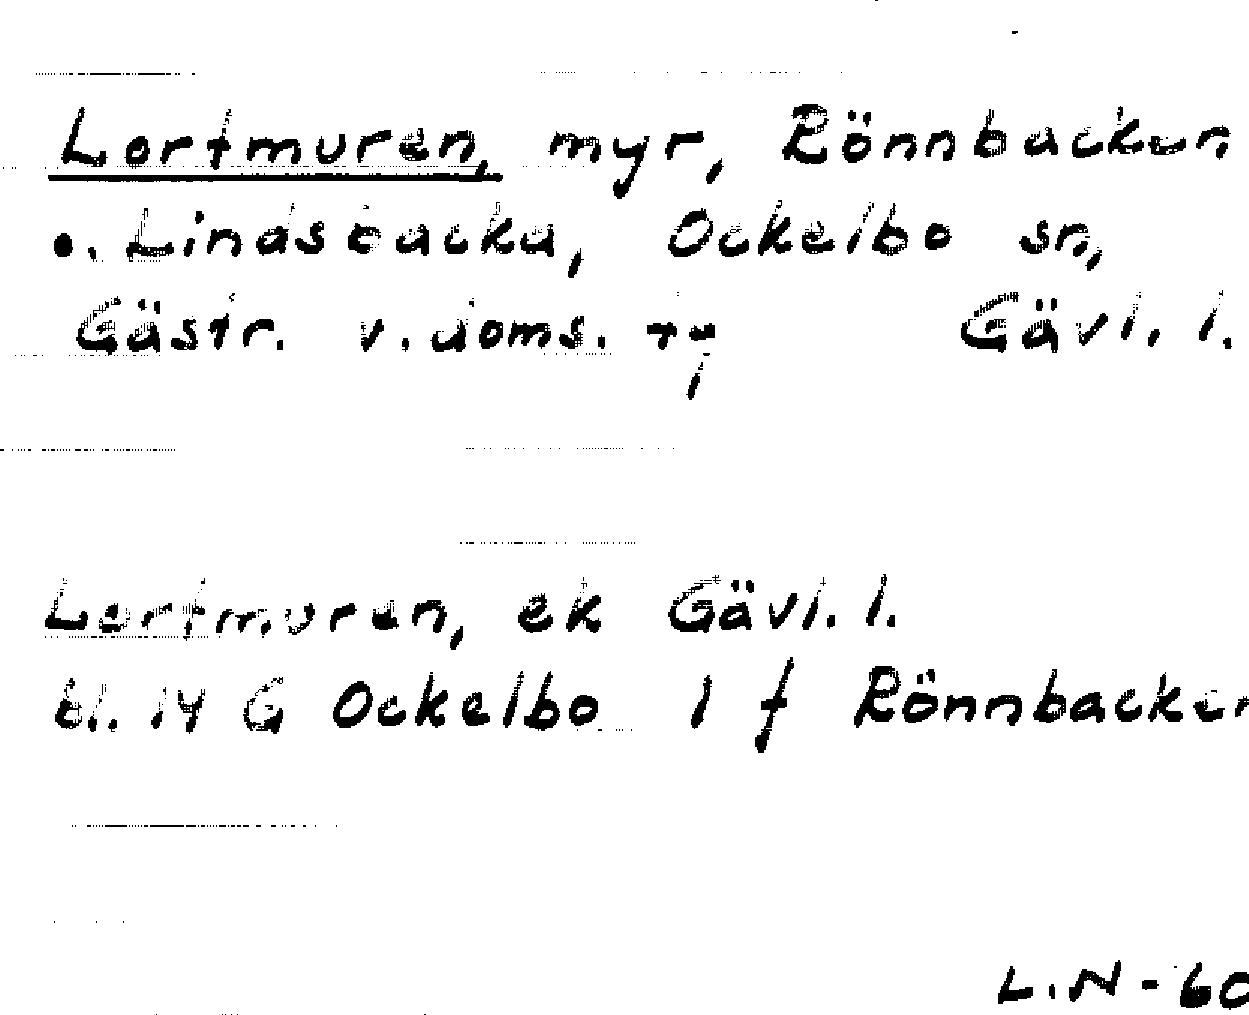 Lortmuren, myr, Rönnbacken
o. Lindsbacka, Ockelbo sn,
Gästr. v. doms. Gävl. l.
Lortmuren, ek Gävl. l.
bl. 14 G Ockelbo 1 f Rönnbacken
L.N - 60